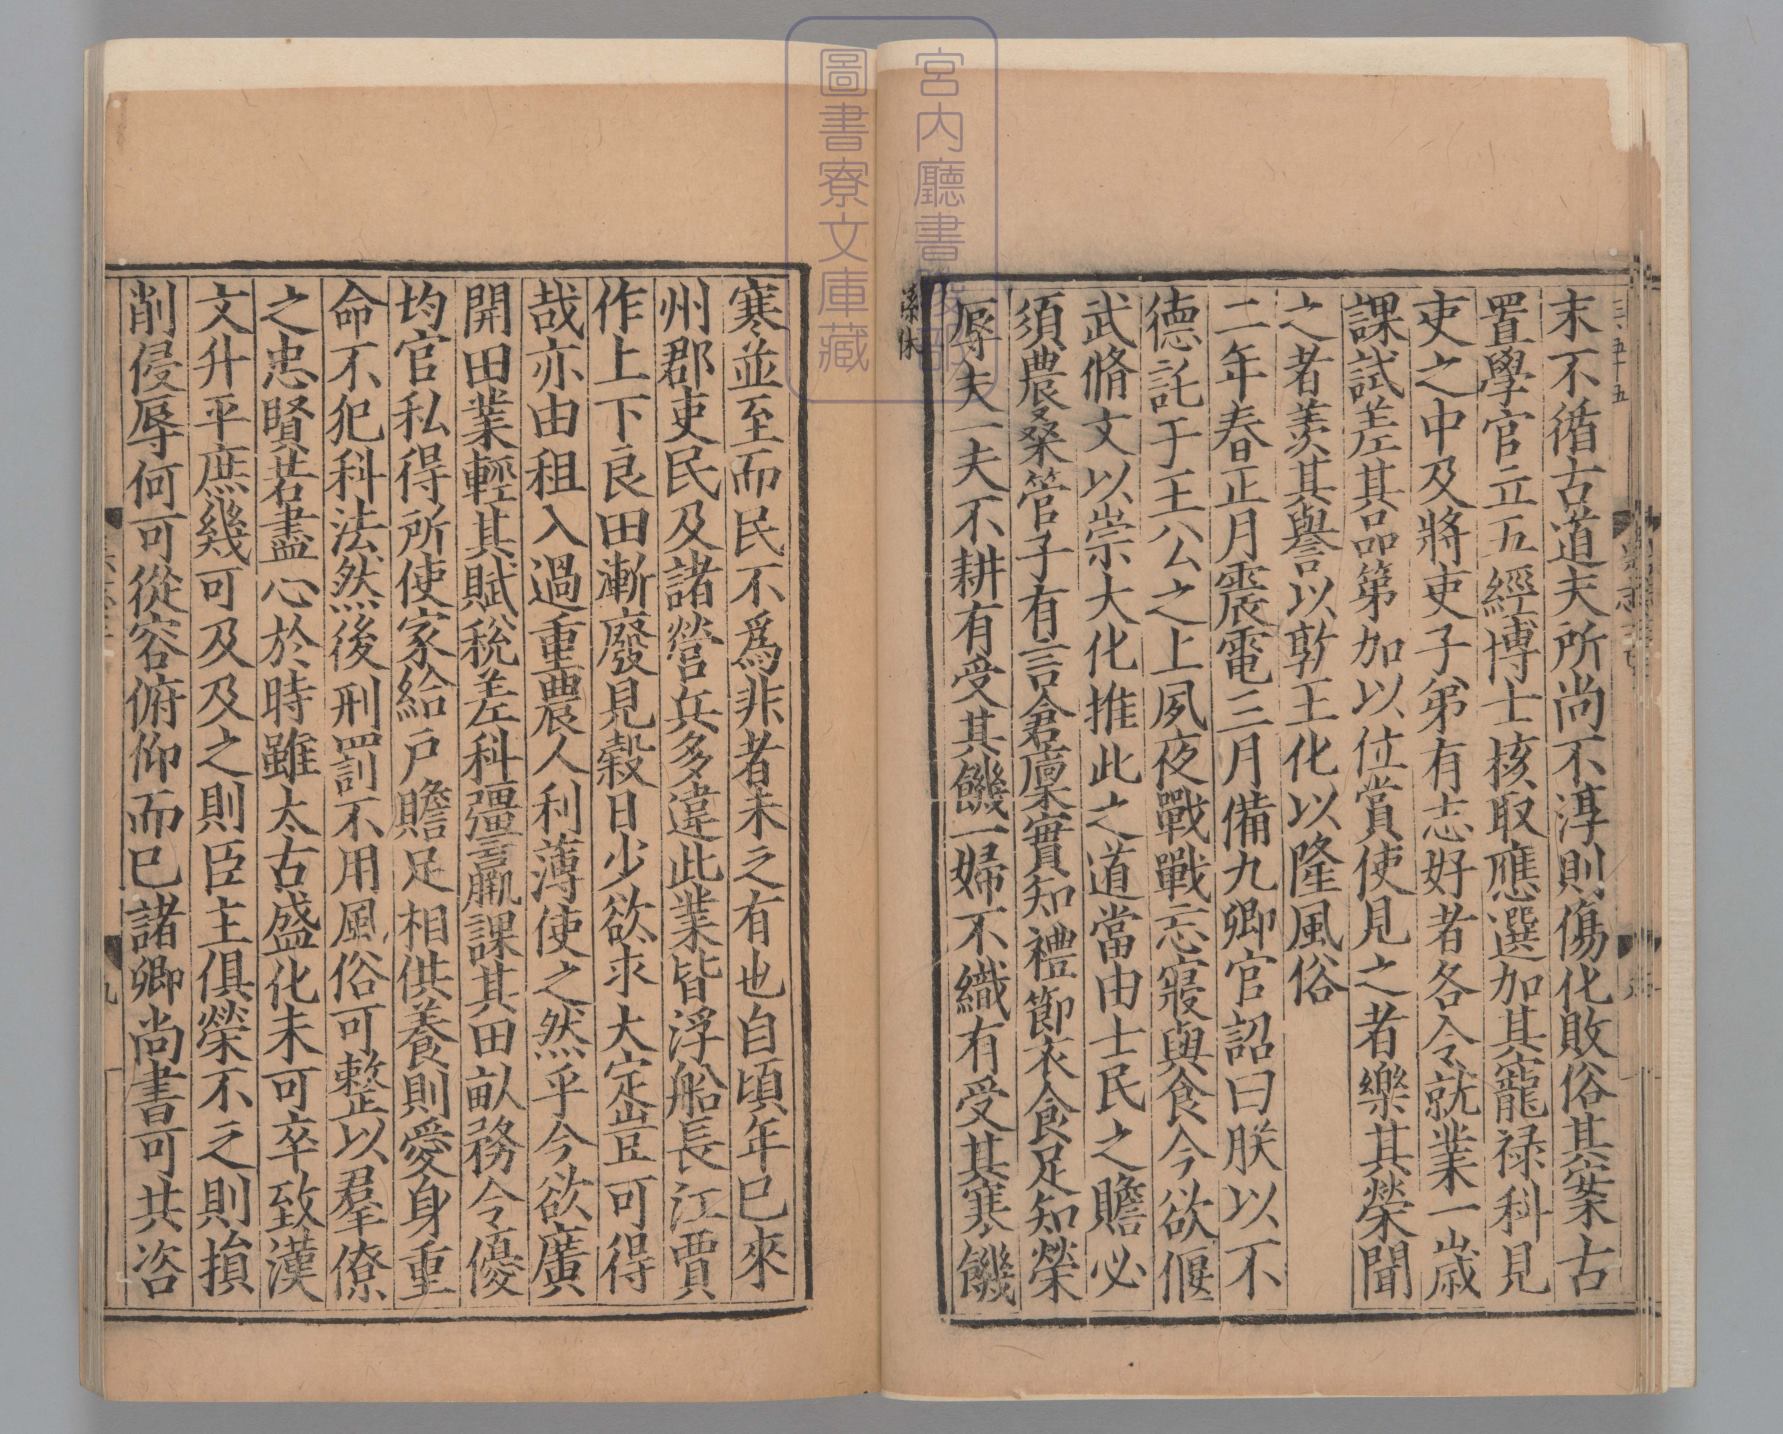 末不循古道夫所尚不淳則傷化敗俗其案古
置學官立五經博士核取應選加其寵禄科見
吏之中及將吏子弟有志好者各令就業一歲
課試差其品第加以位賞使見之者樂其榮聞
之者羨其譽以敦王化以隆風俗
二年春正月震電三月備九卿官詔曰朕以不
德託于王公之上夙夜戰戰忘寢與食今欲偃
武脩文以崇大化推此之道當由士民之贍必
須農桑管子有言倉廩實知禮節衣食足知榮
辱夫一夫不耕有受其饑一婦不織有受其寒饑
孫休
寒並至而民不爲非者未之有也自頃年已來
州郡吏民及諸營兵多違此業皆浮船長江賈
作上下良田漸廢見穀日少欲求大定豈可得
哉亦由租入過重農人利薄使之然乎今欲廣
開田業輕其賦稅差科彊羸課其田畝務令優
均官私得所使家給户贍足相供養則愛身重
命不犯科法然後刑罰不用風俗可整以羣僚
之忠賢若盡心於時雖太古盛化未可卒致漢
文升平庶幾可及及之則臣主俱榮不之則損
削侵辱何可從容俯仰而已諸卿尚書可共咨
宮内廳書陵部
圖書寮文庫藏